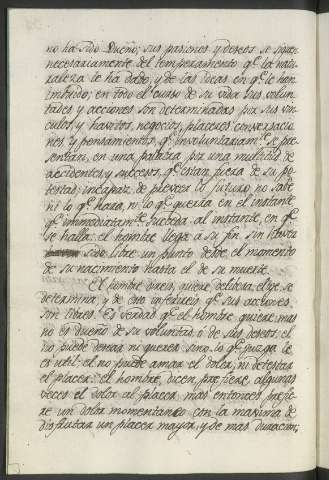 no ha sido Dueño; sus pasiones y deseos se siguen
necesariamente del temperamento qe. la natu-
raleza le ha dado, y de las ideas en qe. le han
imbuido; en todo el curso de su vida sus volun-
tades y acciones son determinadas por sus vin-
culos, y havitos, negocios, placeres conversacio-
nes y pensamientos, qe. involuntariamte. se pre-
sentan, en una palabra por una multitud de
accidentes y sucesos, qe. estan fuera de su po-
testad: incapaz de preveer lo futuro no sabe
ni lo qe. hara, ni lo qe. querra en el instante
qe. immediatamte. suceda al instante, en qe.
se halla: el hombre llega á su fin sin haver
sido libre un punto desde el momento
de su nacimiento hasta el de su muerte.
El hombre direis, quiere, delibera, elije, se
determina, y de esto inferireis qe. sus acciones
son libres. Es verdad qe. el hombre quiere; mas
no es dueño de su voluntad, ó de sus deseos, el
no puede desear ni querer sino lo qe. juzga le
es util: el no puede amar el dolor, ni detestar
el placer: el hombre, dicen, prefiere algunas
veces el dolor al placer, mas entonces prefie-
re un dolor momentaneo con la maxima de
disfrutar un placer mayor, y de mas duracion;